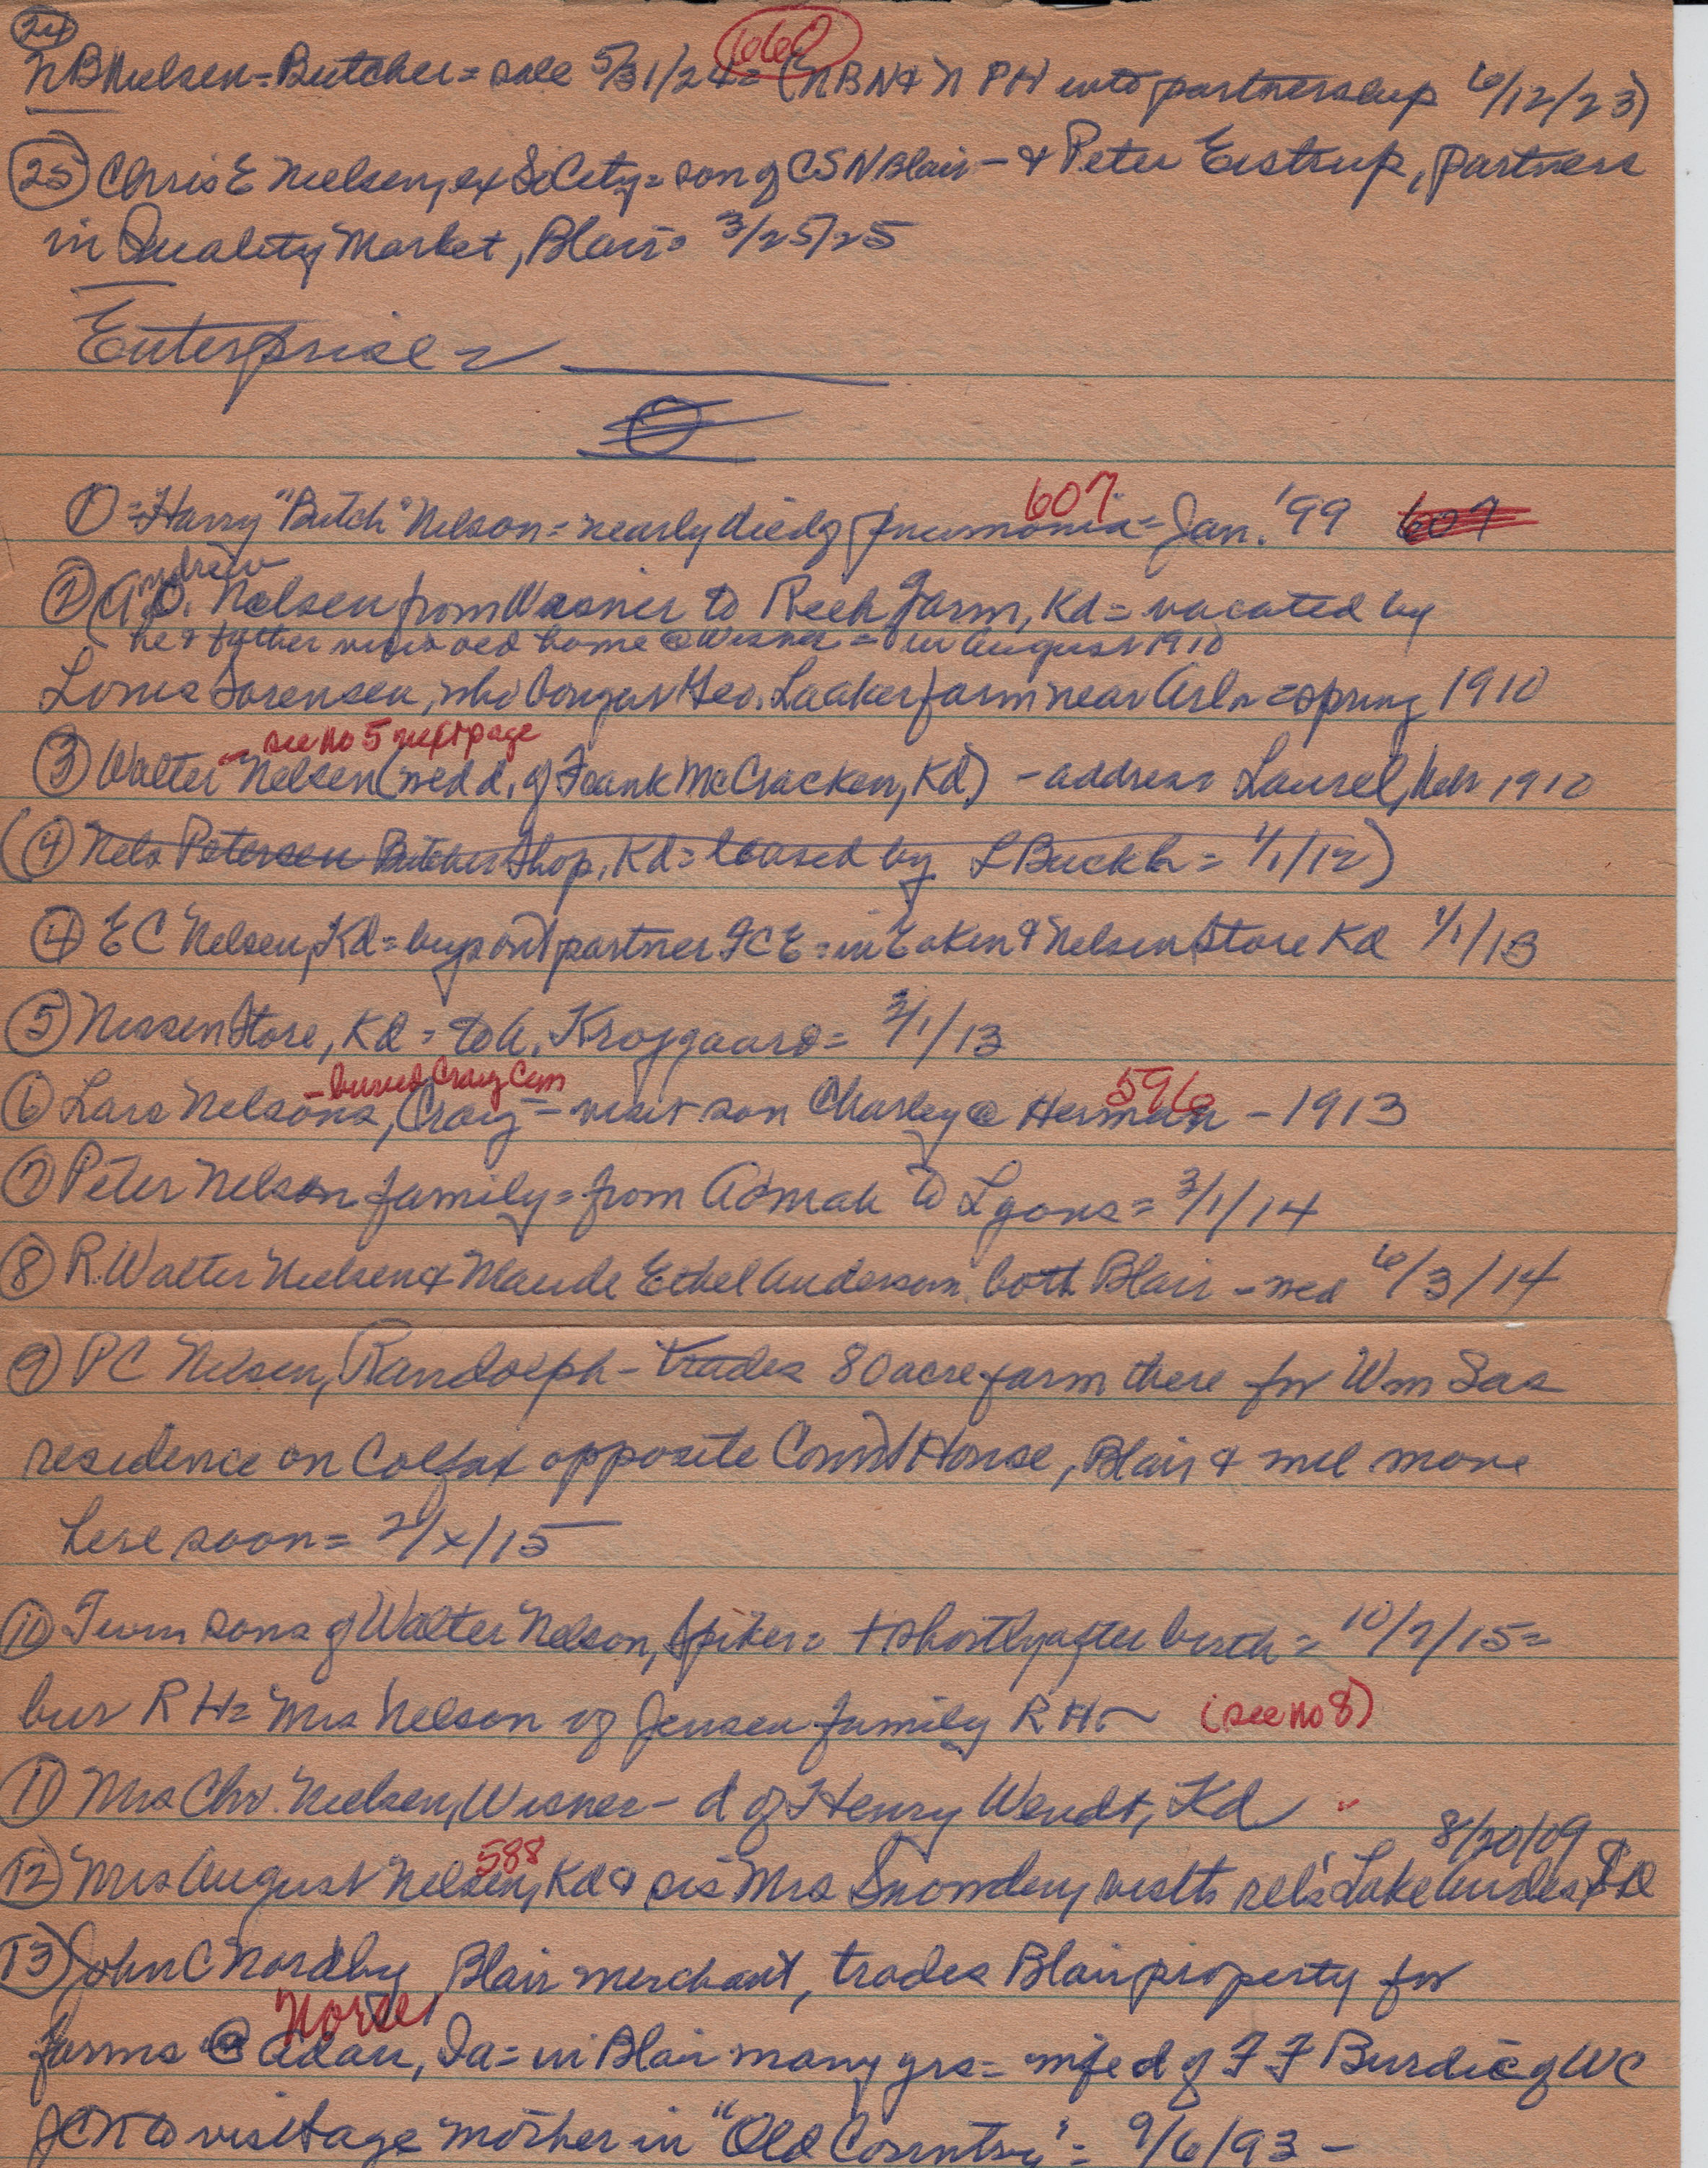 24 660
N B Nielsen = Butcher = sale 5/31/24 = (NBN & N PH into partnership 6/12/23)
25 Chris E Nielsen, ex So City = son of CSN Blair - & Peter Eistrup, partners
in Quality Market, Blair = 3/25/25
Enterprise
1 = Harry "Butch" Nelson = nearly died of pneumonia = Jan. '99 607 607
Andrew
2 (A.D. Nelsen from Wisner to Reeh Farm, Kd = vacated by
he & father visit old home @ Wisner = in August 1910
Louis Sorensen, who bought Geo. Laaker farm near Arln = spring 1910
- see no 5 next page
3 Walter Nelsen (wed d. of Frank McCracken, Kd) - address Laurel, Nebr 1910
(4 Nels Petersen Butcher Shop, Kd = leased by L Buckh = 1/1/12)
4 E C Nelsen, Kd = buys out partner FCE = in Eaken & Nelsen Store Kd 1/1/13
5 Nissen Store, Kd = to A. Krojgaard = 3/1/13
- buried Craig Cem 596
6 Lars Nelsons, Craig - visit son Charley @ Herman - 1913
7 Peter Nelson family = from Admah to Lyons = 3/1/14
8 R. Walter Nielsen & Maude Ethel Anderson both Blair - wed 6/3/14
9 PC Nelsen, Randolph - trades 80 acre farm there for Wm Sas
residence on Colfax opposite Court House, Blair & will move
here soon = 2/x/15
10 Twin sons of Walter Nelson, Spiker = + shortly after birth = 10/7/15 =
bur R H = Mrs Nelson of Jensen family R H ~ (see no 8)
11 Mrs Chr. Nielsen, Wisner - d of Henry Wendt, Kd
588 8/20/09
12 Mrs August Nelsen, Kd & sis Mrs Snowdeny visits rels Lake Andes SD
13 John C Nordby Blair merchant, trades Blair property for
Norse
farms @ Adair, Ia = in Blair many yrs = wife d of F F Burdic of WC
JCN to visit age mother in "Old Country" = 9/6/93 -